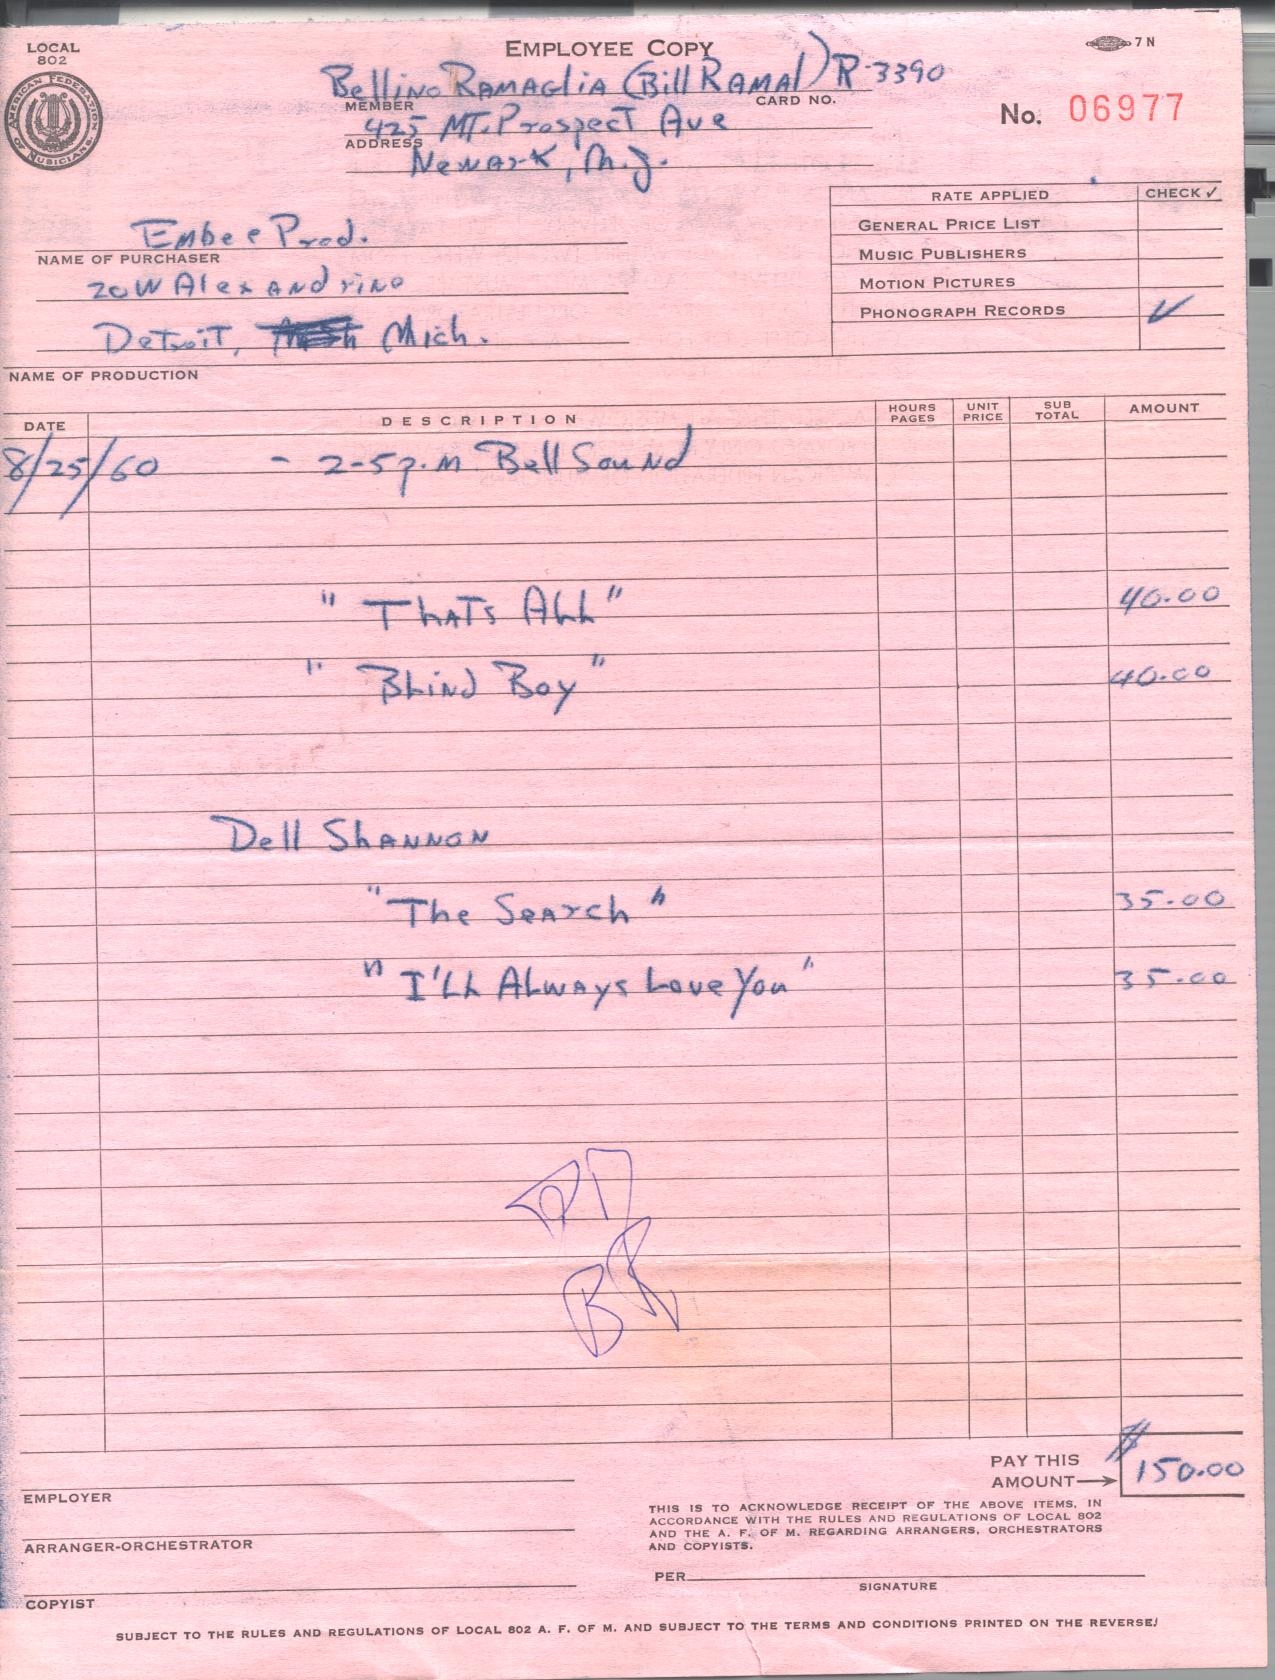 LOCAL
802
AMERICAN FEDERATION OF MUSICIANS
EMPLOYEE COPY
7 N
Bellino Ramaglia (Bill Ramal) R-3390
MEMBER CARD NO.
No. 06977
425 MT. Prospect Ave
ADDRESS
Newark, N.J.
RATE APPLIED CHECK ✓
GENERAL PRICE LIST
MUSIC PUBLISHERS
MOTION PICTURES
PHONOGRAPH RECORDS ✓
Embee Prod.
NAME OF PURCHASER
20 W Alexandrino
Detroit, Mich.
NAME OF PRODUCTION
DATE DESCRIPTION HOURS PAGES UNIT PRICE SUB TOTAL AMOUNT
8/25/60 - 2-5 p.m Bell Sound
"Thats All" 40.00
"Blind Boy" 40.00
Dell Shannon
"The Search" 35.00
"I'll Always Love You" 35.00
BR
PAY THIS
AMOUNT→ $150.00
EMPLOYER
ARRANGER-ORCHESTRATOR
COPYIST
THIS IS TO ACKNOWLEDGE RECEIPT OF THE ABOVE ITEMS, IN
ACCORDANCE WITH THE RULES AND REGULATIONS OF LOCAL 802
AND THE A. F. OF M. REGARDING ARRANGERS, ORCHESTRATORS
AND COPYISTS.
PER
SIGNATURE
SUBJECT TO THE RULES AND REGULATIONS OF LOCAL 802 A. F. OF M. AND SUBJECT TO THE TERMS AND CONDITIONS PRINTED ON THE REVERSE.